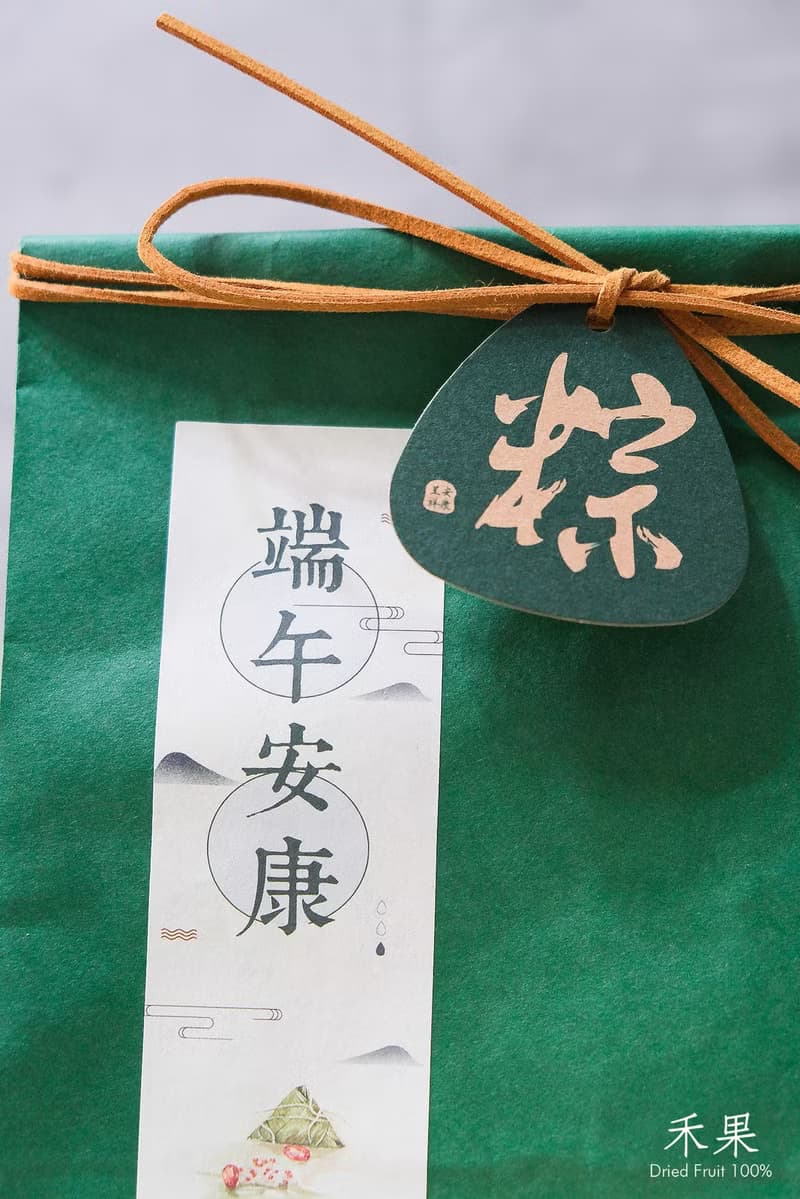 粽
端午安康
禾果
Dried Fruit 100%